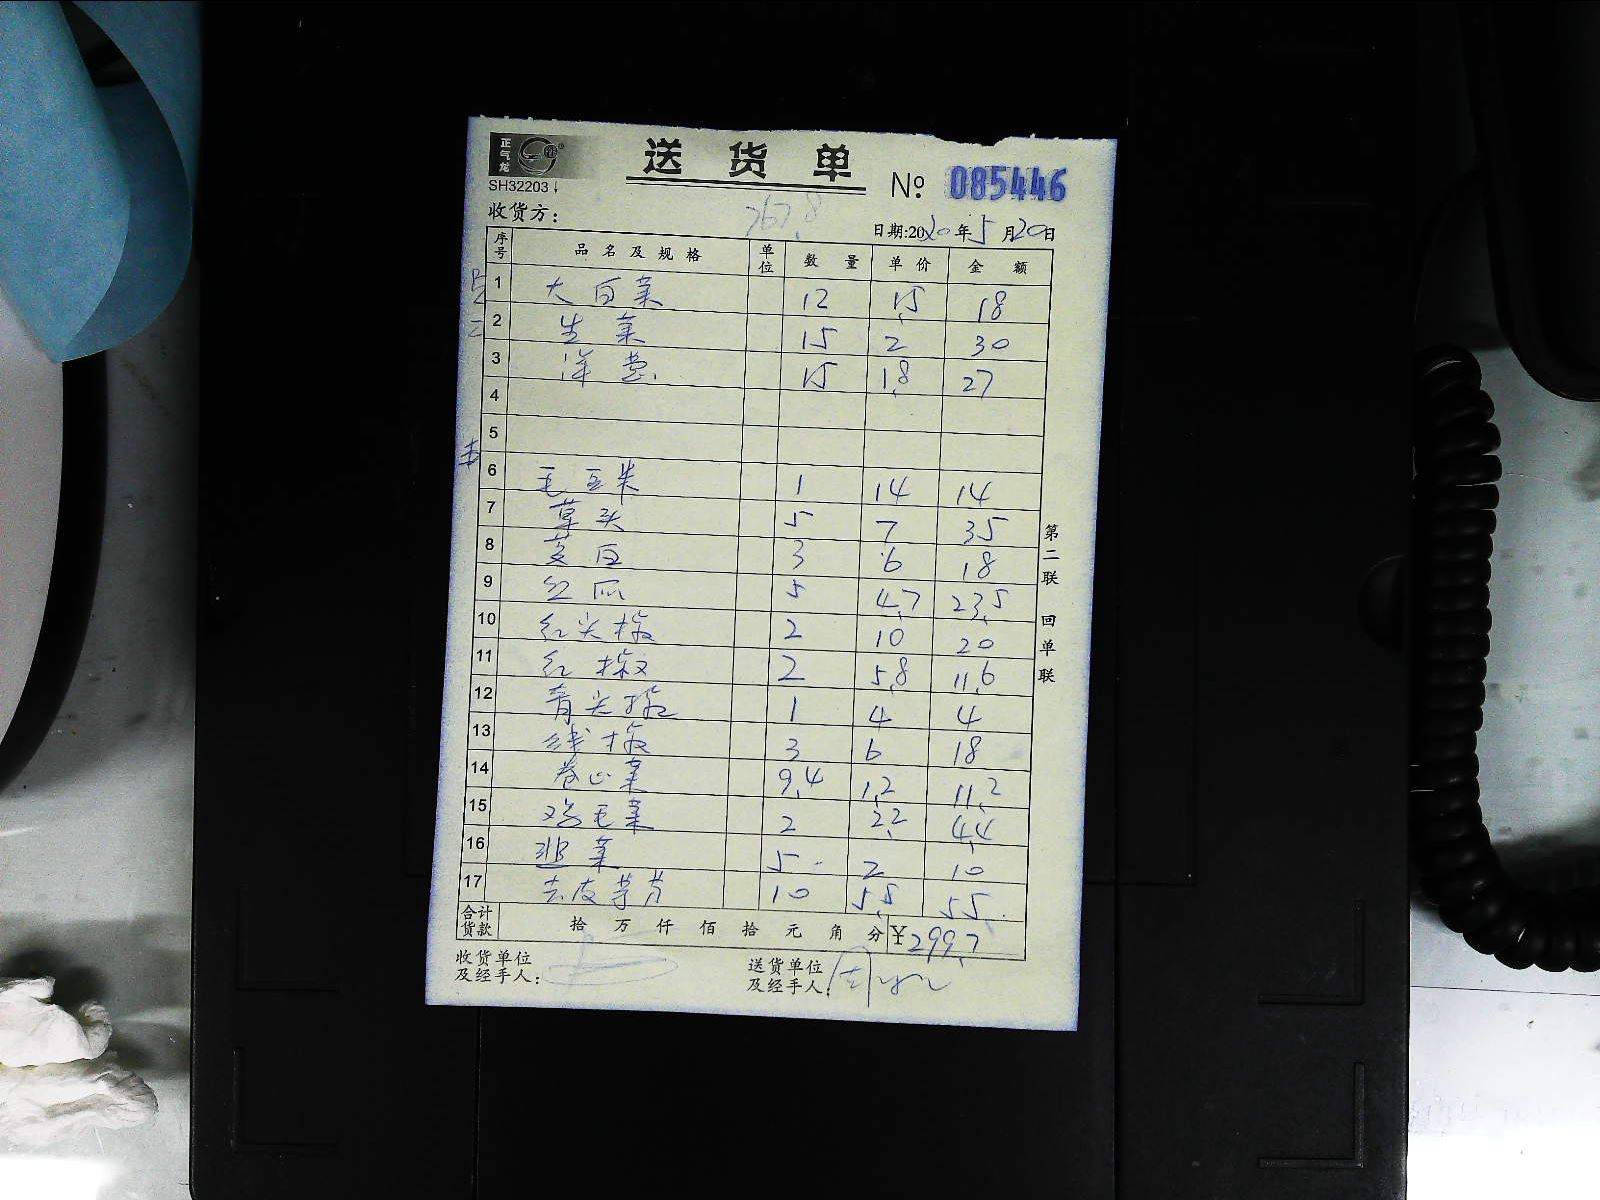 正气龙
送货单
SH32203
№ 085446
收货方：
767.8
日期:2020年5月20日
序号 品名及规格 单位 数量 单价 金额
1 大白菜 12 1.5 18
2 生菜 15 2 30
3 洋葱 15 1.8 27
4
5
6 毛豆米 1 14 14
7 草头 5 7 35
8 茭白 3 6 18
9 红瓜 5 4.7 23.5
10 红尖椒 2 10 20
11 红椒 2 5.8 11.6
12 青尖椒 1 4 4
13 线椒 3 6 18
14 卷心菜 9.4 1.2 11.2
15 鸡毛菜 2 2.2 4.4
16 韭菜 5 2 10
17 去皮芋艿 10 5.5 55
合计货款 拾万仟佰拾元角分 ¥299.7
收货单位及经手人：
送货单位及经手人：
第二联 回单联